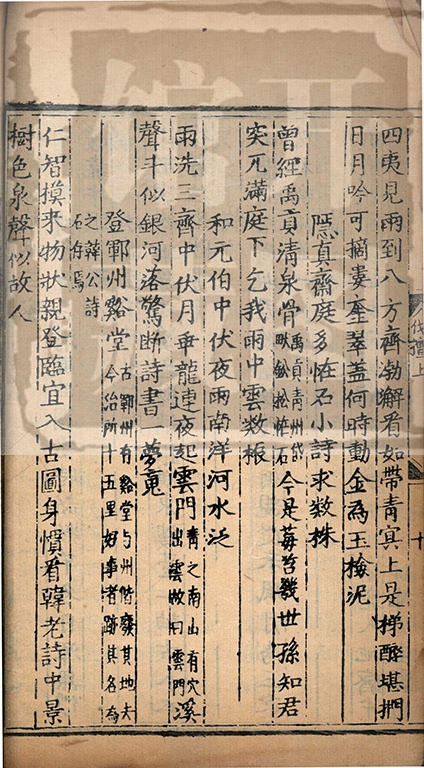 四夷見雨到八方齊渤澥看如帶青冥上是梯醉堪捫
日月吟可摘婁奎翠蓋何時動金為玉檢泥
隱真齋庭多恠石小詩求数株
曾經禹貢清泉骨禹貢青州岱畎鈆松恠石今是莓苔幾世孫知君
突兀滿庭下乞我雨中雲数根
和元伯中伏夜雨南洋河水泛
雨洗三齊中伏月垂龍連夜起雲門青之南山有穴出雲故曰雲門溪
聲半似銀河落驚斷詩書一夢䰟
登鄆州谿堂古鄆州有谿堂与州偕廢其地去今治所十五里好事者跡其名為
之韓公詩石存焉
仁智摸来物狀親登臨宜入古圖身慣看韓老詩中景
樹色泉聲似故人
伐檀上
十